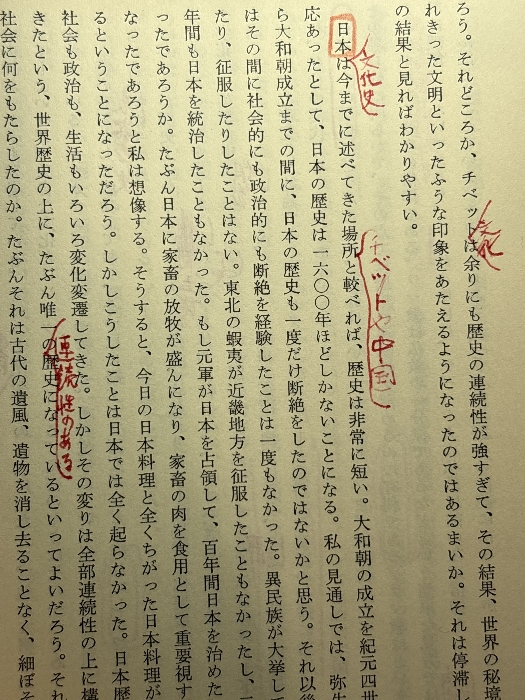 ろう。それどころか、チベットは余りにも歴史の連続性が強すぎて、その結果、世界の秘境
れきった文明といったふうな印象をあたえるようになったのではあるまいか。それは停滞し
の結果と見ればわかりやすい。
日本は今までに述べてきた場所と較べれば、歴史は非常に短い。大和朝の成立を紀元四世
応あったとして、日本の歴史は一六〇〇年ほどしかないことになる。私の見通しでは、弥生
ら大和朝成立までの間に、日本の歴史も一度だけ断絶をしたのではないかと思う。それ以後
はその間に社会的にも政治的にも断絶を経験したことは一度もなかった。異民族が大挙し
たり、征服したりしたことはない。東北の蝦夷が近畿地方を征服したこともなかったし、一
年間も日本を統治したこともなかった。もし元軍が日本を占領して、百年間日本を治めた
ったであろうか。たぶん日本に家畜の放牧が盛んになり、家畜の肉を食用として重要視す
なったであろうと私は想像する。そうすると、今日の日本料理と全くちがった日本料理が
るということになっただろう。しかしこうしたことは日本では全く起らなかった。日本歴
社会も政治も、生活もいろいろ変化変遷してきた。しかしその変りは全部連続性の上に構
きたという、世界歴史の上に、たぶん唯一の歴史になっているといってよいだろう。それ
社会に何をもたらしたのか。たぶんそれは古代の遺風、遺物を消し去ることなく、細ぼそ
文化
文化史
チベットや中国
連続性のある